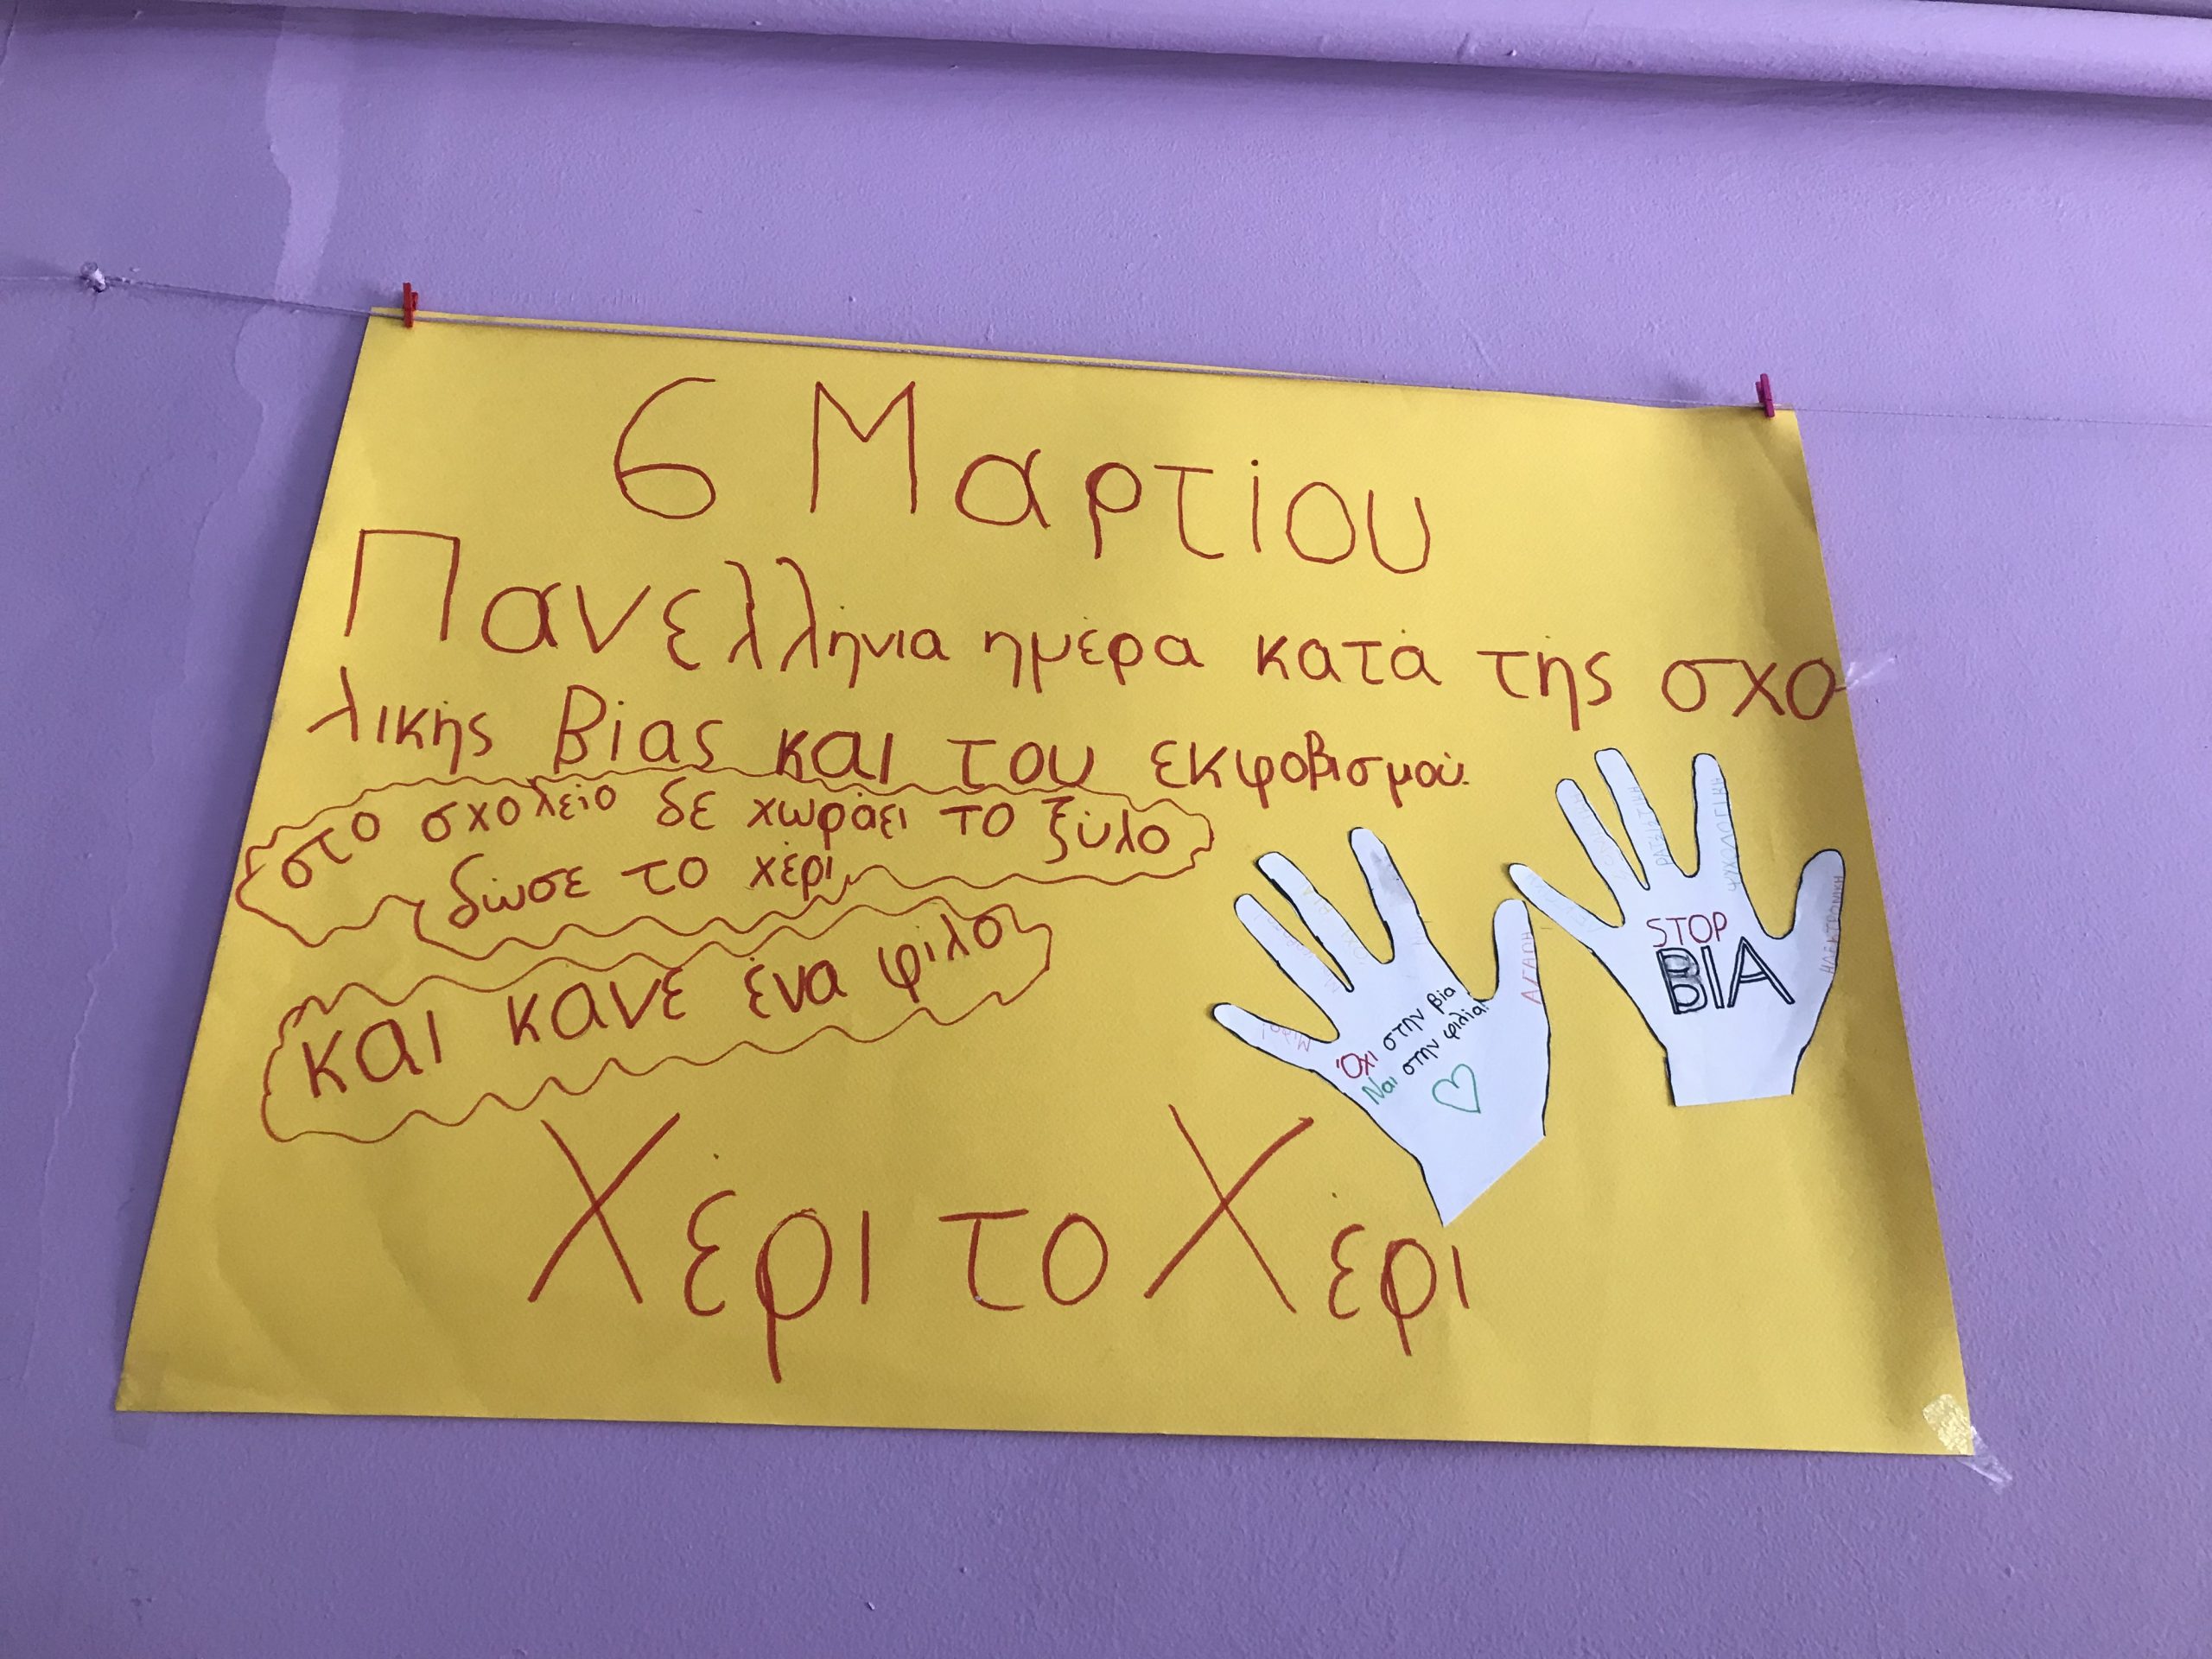 6 Μαρτίου
Πανελλήνια ημέρα κατά της σχο
λικής βίας και του εκφοβισμού.
στο σχολείο δε χωράει το ξύλο
δώσε το χέρι
και κανε ένα φίλο
Όχι στην βία
Ναι στην φιλία!
Μίλα!
ΑΓΑΠΗ
STOP
ΒΙΑ
ΡΑΤΣΙΣΤΙΚΗ
ΨΥΧΟΛΟΓΙΚΗ
ΗΛΕΚΤΡΟΝΙΚΗ
Χέρι το Χέρι